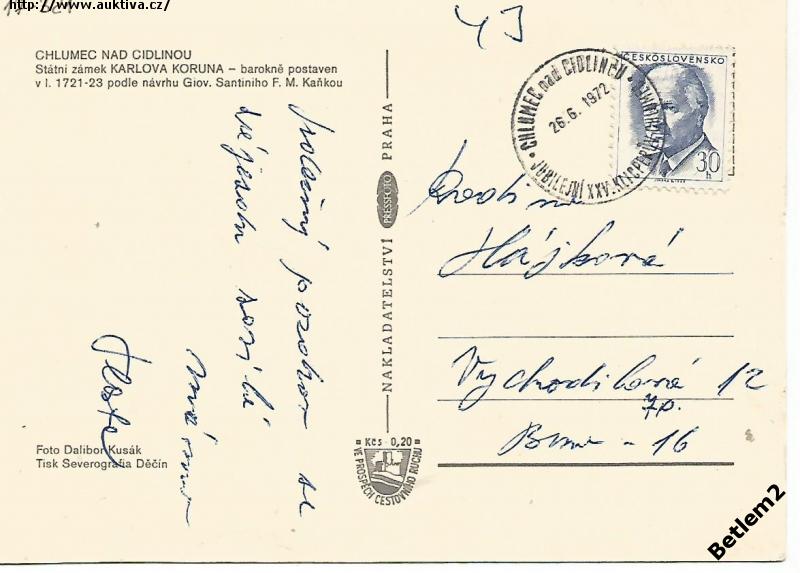 http://www.auktiva.cz/
43
CHLUMEC NAD CIDLINOU
Státní zámek KARLOVA KORUNA – barokně postaven
v l. 1721-23 podle návrhu Giov. Santiniho F. M. Kaňkou
srdečný pozdrav se
Foto Dalibor Kusák
Tisk Severografia Děčín
NAKLADATELSTVÍ PRESSFOTO PRAHA
Kčs 0,20
VE PROSPĚCH CESTOVNÍHO RUCHU
ČESKOSLOVENSKO
30
h
CHLUMEC nad CIDLINOU
26.6.1972
JUBILEJNÍ XXV.
Rodina
Hájková
Vychodilova 12
7p.
Brno - 16
Betlem2